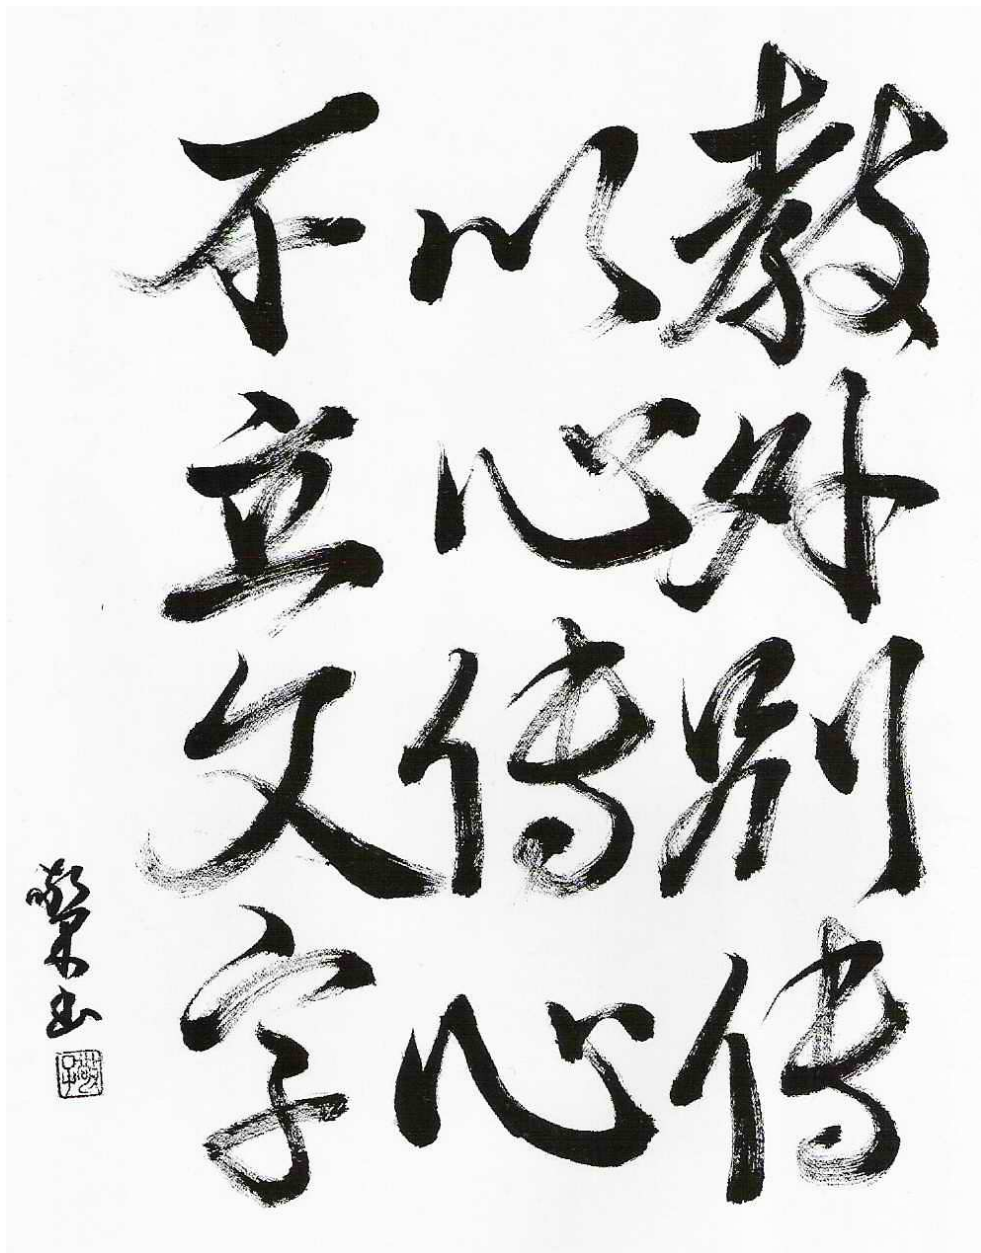 教外別傳
以心傳心
不立文字